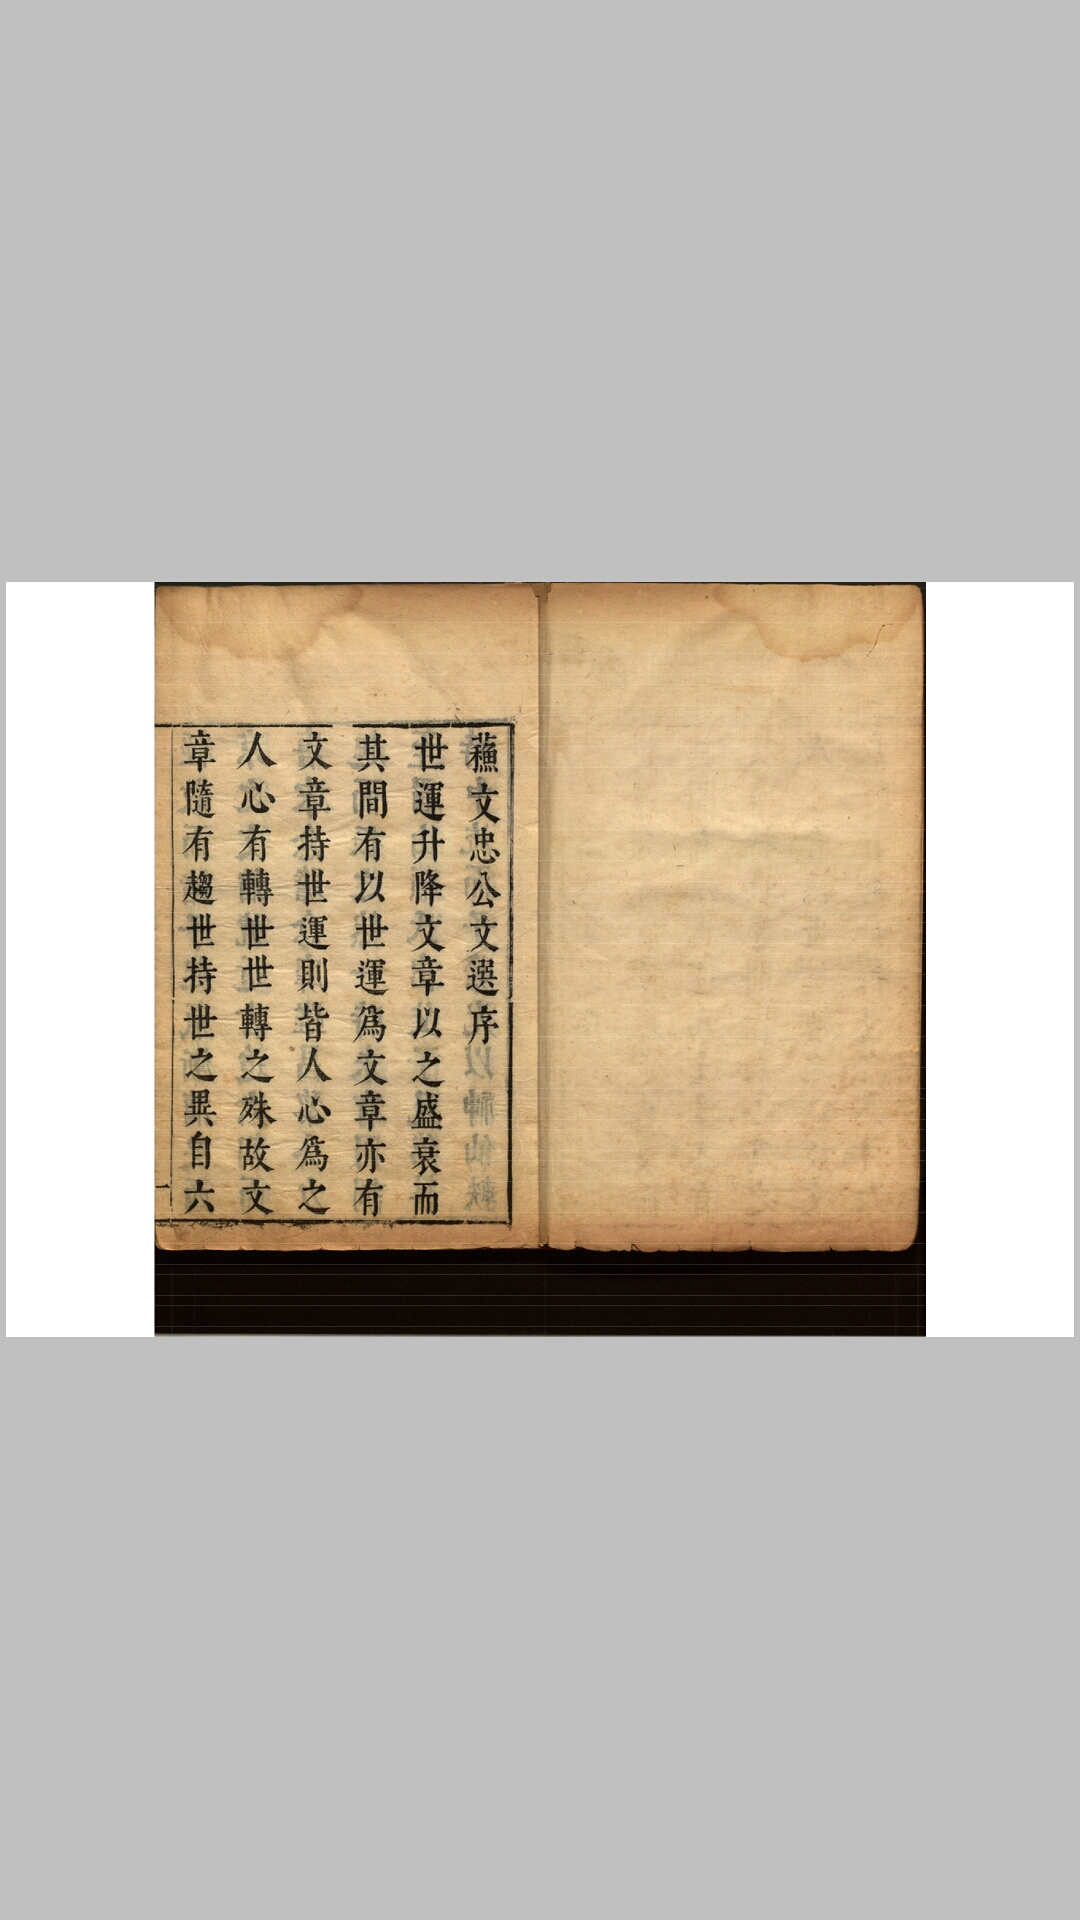 蘓文忠公文選序
世運升降文章以之盛衰而
其間有以世運爲文章亦有
文章持世運則皆人心爲之
人心有轉世世轉之殊故文
章隨有趨世持世之異自六
一